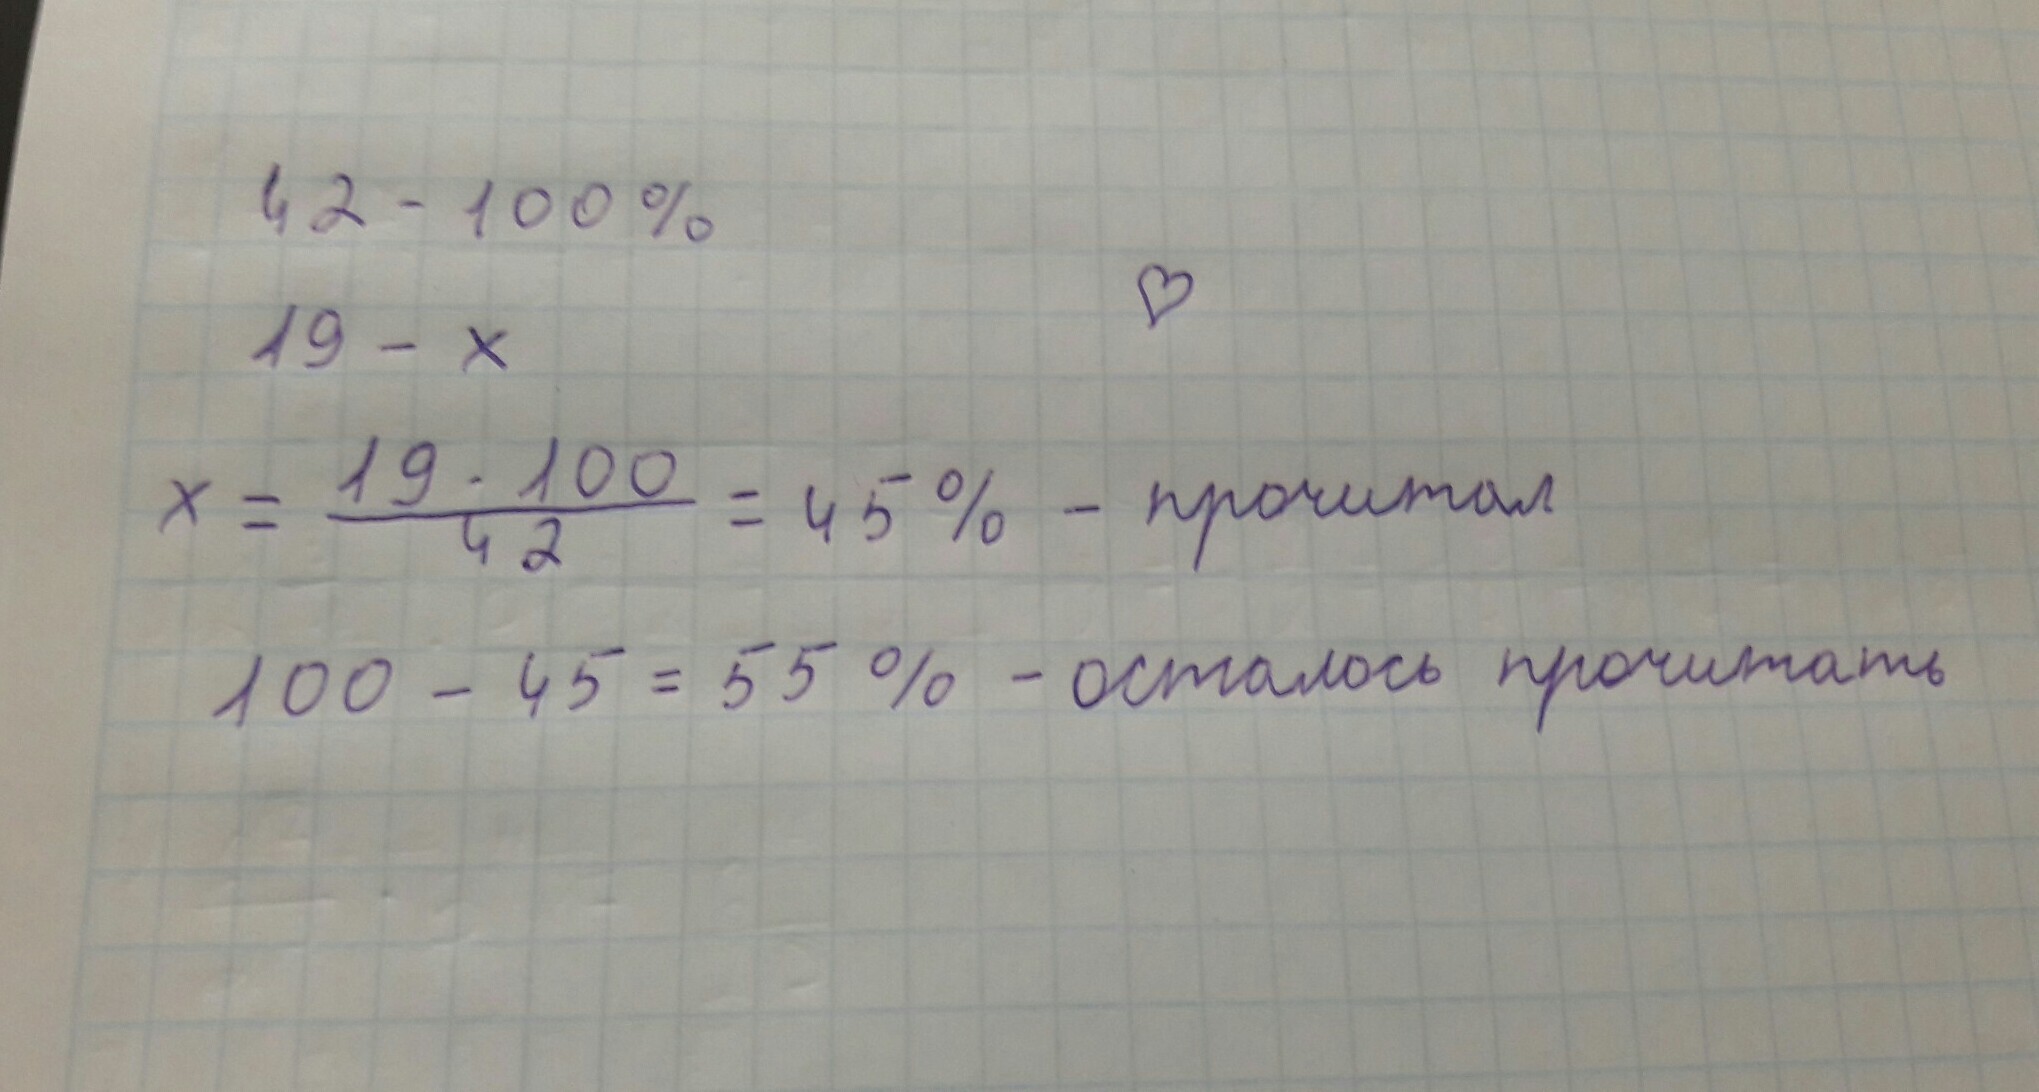 42 - 100%
19 - x
x = 19 · 100 / 42 = 45% - прочитал
100 - 45 = 55% - осталось прочитать